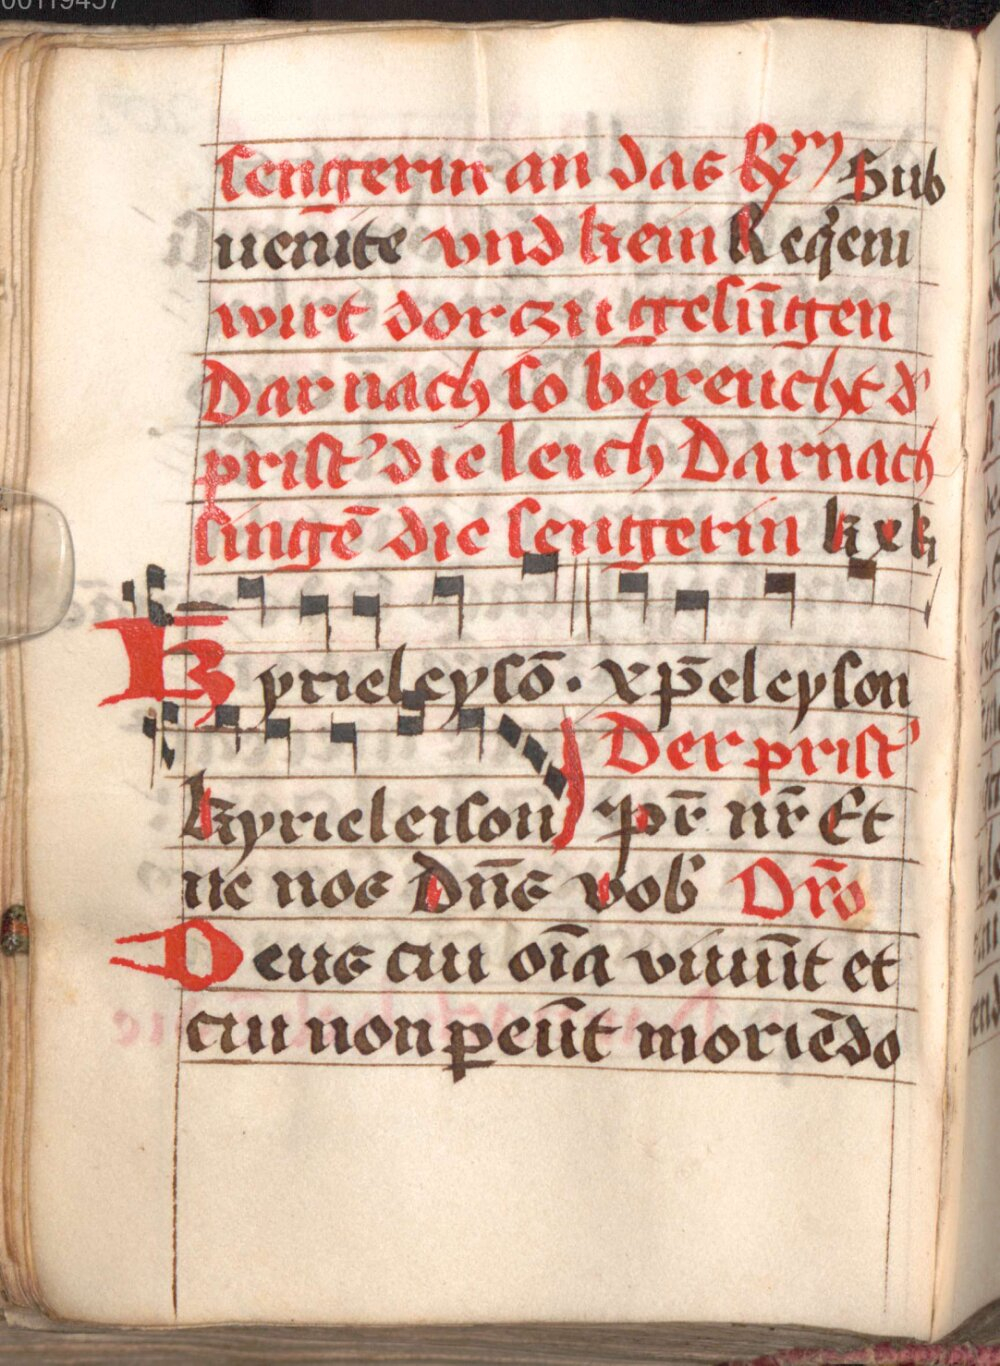 00119457
sengerin an das Rm Sub
uenite vnd kein Reqem
wirt dorczu gesūgen
Dar nach so bereucht d'
prist' die leich Darnach
singē die sengerin k x k
Kyrieleysō. xp̄eleyson
Der prist'
kyrieleison pr̄ nr̄ Et
ne nos Dn̄s vob' Or̄o
Deus cui oīa viuūt et
cui non peūt moriēdo